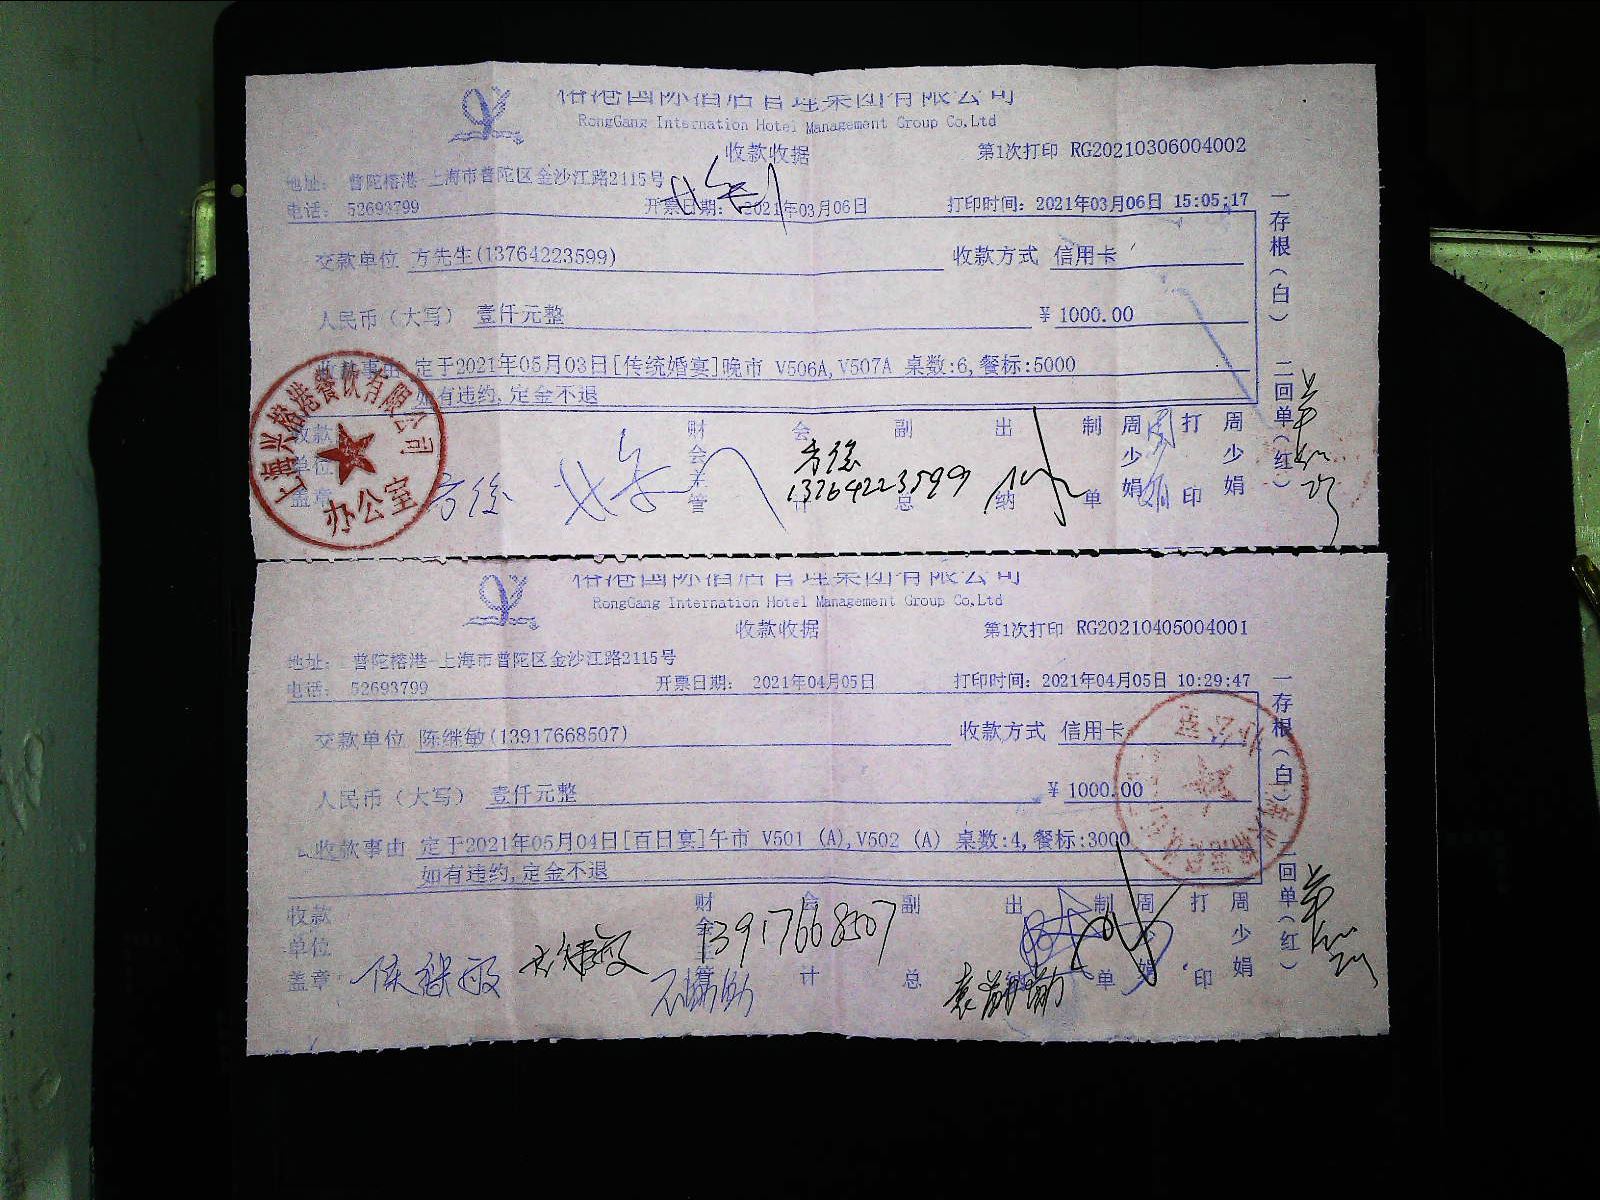 榕港国际酒店管理集团有限公司
RongGang Internation Hotel Management Group Co.Ltd
收款收据
第1次打印 RG20210306004002
地址: 普陀榕港-上海市普陀区金沙江路2115号
电话: 52693799 开票日期: 2021年03月06日 打印时间: 2021年03月06日 15:05:17
交款单位 方先生(13764223599) 收款方式 信用卡
人民币(大写) 壹仟元整 ¥ 1000.00
收款事由 定于2021年05月03日[传统婚宴]晚市 V506A,V507A 桌数:6,餐标:5000
如有违约,定金不退
收款单位盖章 财会主管 会计 副总 出纳 制单 周少娟 打印 周少娟
13764223599
一存根(白) 二回单(红)
上海兴榕港餐饮有限公司
办公室
榕港国际酒店管理集团有限公司
RongGang Internation Hotel Management Group Co.Ltd
收款收据
第1次打印 RG20210405004001
地址: 普陀榕港-上海市普陀区金沙江路2115号
电话: 52693799 开票日期: 2021年04月05日 打印时间: 2021年04月05日 10:29:47
交款单位 陈继敏(13917668507) 收款方式 信用卡
人民币(大写) 壹仟元整 ¥ 1000.00
收款事由 定于2021年05月04日[百日宴]午市 V501 (A),V502 (A) 桌数:4,餐标:3000
如有违约,定金不退
收款单位盖章 财会主管 会计 副总 出纳 制单 周少娟 打印 周少娟
13917668507
陈继敏
一存根(白) 二回单(红)
办公室